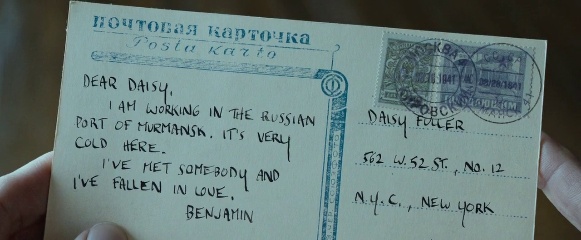 ПОЧТОВАЯ КАРТОЧКА
Posta Karto
DEAR DAISY,
I AM WORKING IN THE RUSSIAN
PORT OF MURMANSK. IT'S VERY
COLD HERE.
I'VE MET SOMEBODY AND
I'VE FALLEN IN LOVE.
BENJAMIN
МОСКВА
DAISY FULLER
562 W. 52 ST., NO. 12
N.Y.C., NEW YORK